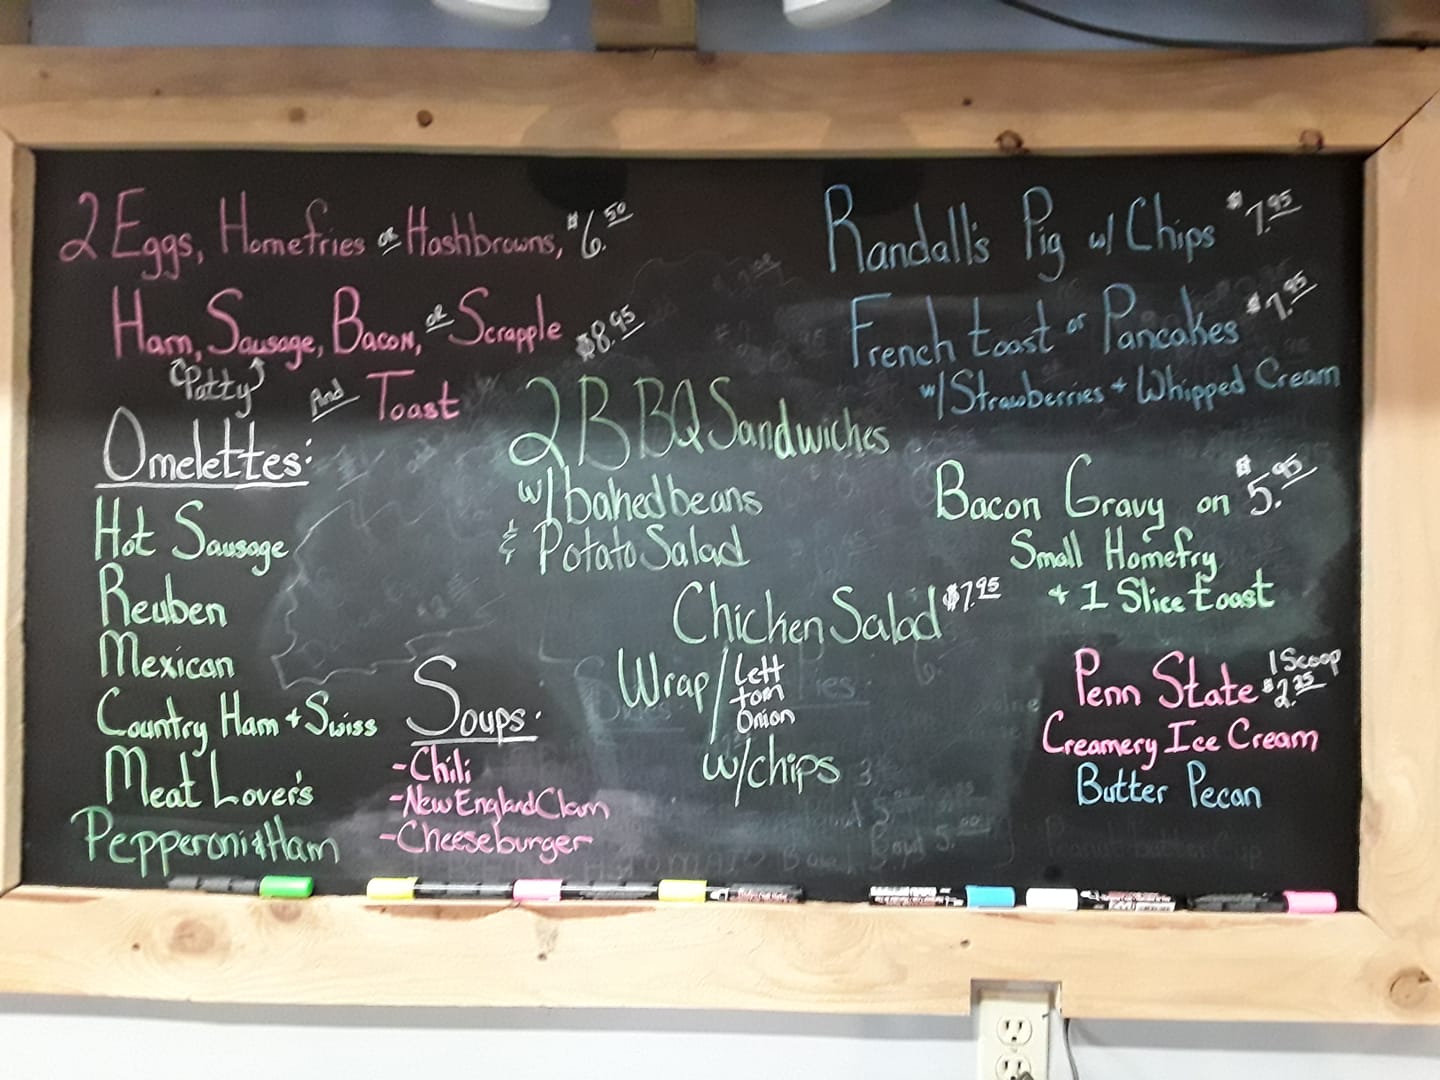 2 Eggs, Homefries or Hashbrowns, $6.50
Ham, Sausage, Bacon, or Scrapple
(Patty)
And Toast
Omelettes:
Hot Sausage
Reuben
Mexican
Country Ham + Swiss
Meat Lover's
Pepperoni & Ham
Soups:
-Chili
-New England Clam
-Cheeseburger
$8.95
2 BBQ Sandwiches
w/ baked beans
& Potato Salad
Chicken Salad $7.95
Wrap/Lett
tom
Onion
w/chips
Randall's Pig w/ Chips $7.95
French toast or Pancakes $7.95
w/ Strawberries + Whipped Cream
Bacon Gravy on $5.95
Small Homefry
+ 1 Slice toast
Penn State 1 Scoop $2.25
Creamery Ice Cream
Butter Pecan